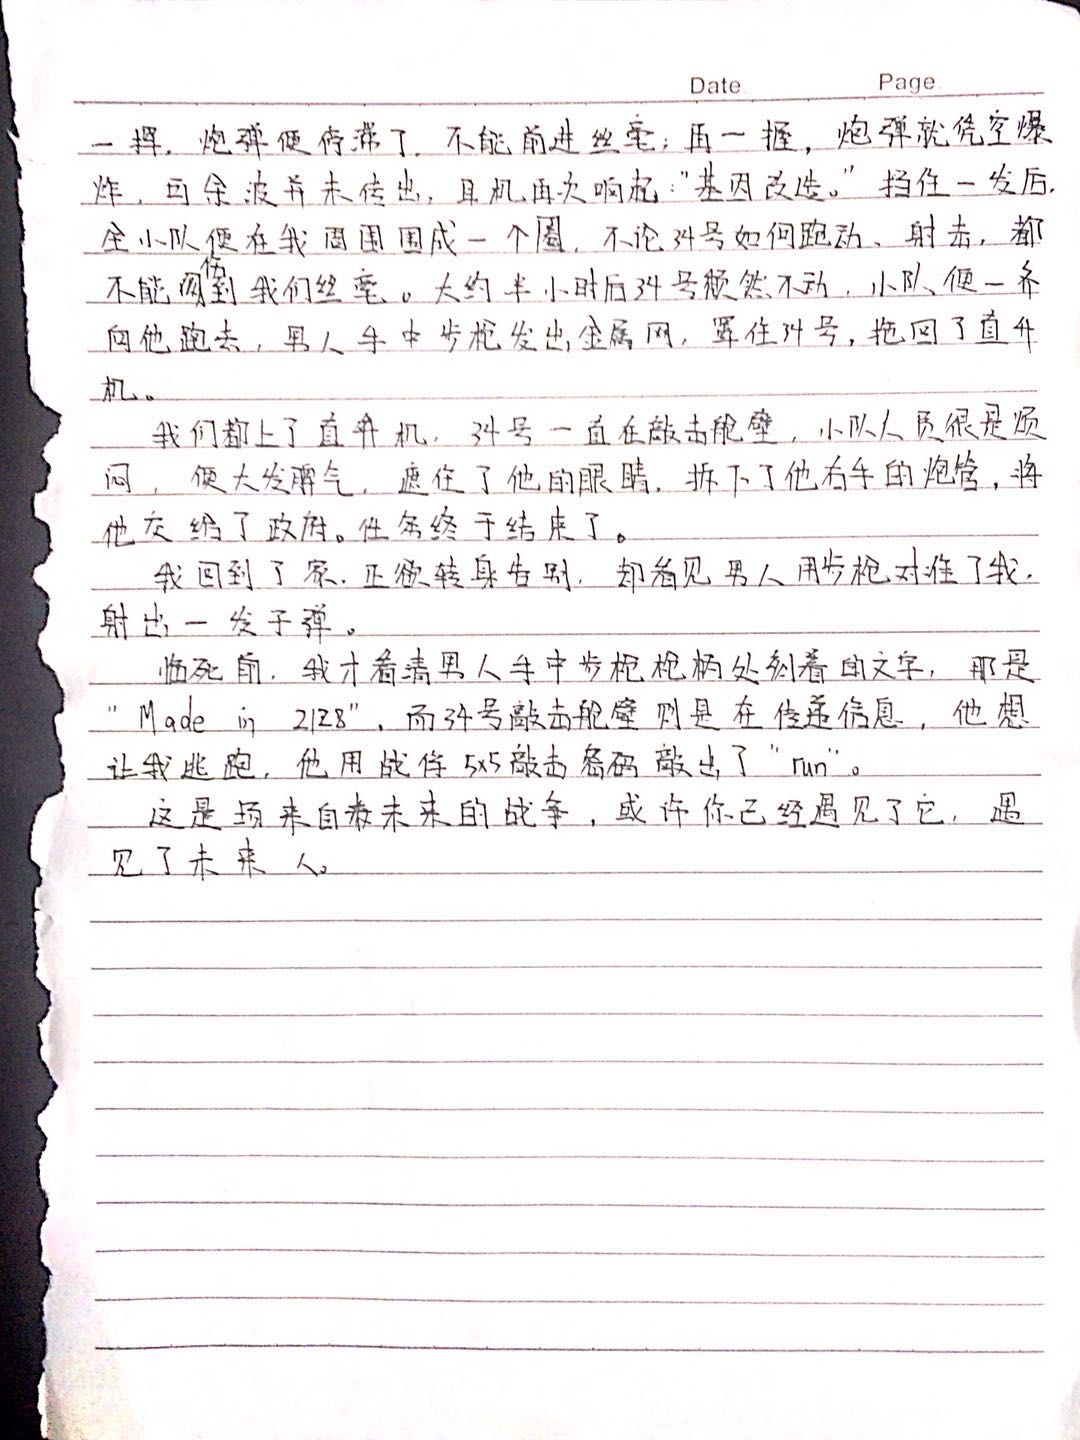 Date. Page.
一挥，炮弹便停滞了，不能前进丝毫；再一握，炮弹就凭空爆
炸，可余波并未传出，耳机再次响起："基因改造。"挡住一发后，
全小队便在我周围围成一个圈，不论34号如何跑动、射击，都
不能伤到我们丝毫。大约半小时后34号颓然不动，小队便一齐
向他跑去，男人手中步枪发出金属网，罩住34号，拖回了直升
机。
我们都上了直升机，34号一直在敲击舱壁，小队人员很是烦
闷，便大发脾气，遮住了他的眼睛，拆下了他右手的炮管，将
他交给了政府。任务终于结束了。
我回到了家，正欲转身告别，却看见男人用步枪对准了我，
射出一发子弹。
临死前，我才看清男人手中步枪枪柄处刻着的文字，那是
"Made in 2128"，而34号敲击舱壁则是在传递信息，他想
让我逃跑，他用战俘5x5敲击密码敲出了"run"。
这是场来自未来的战争，或许你已经遇见了它，遇
见了未来人。